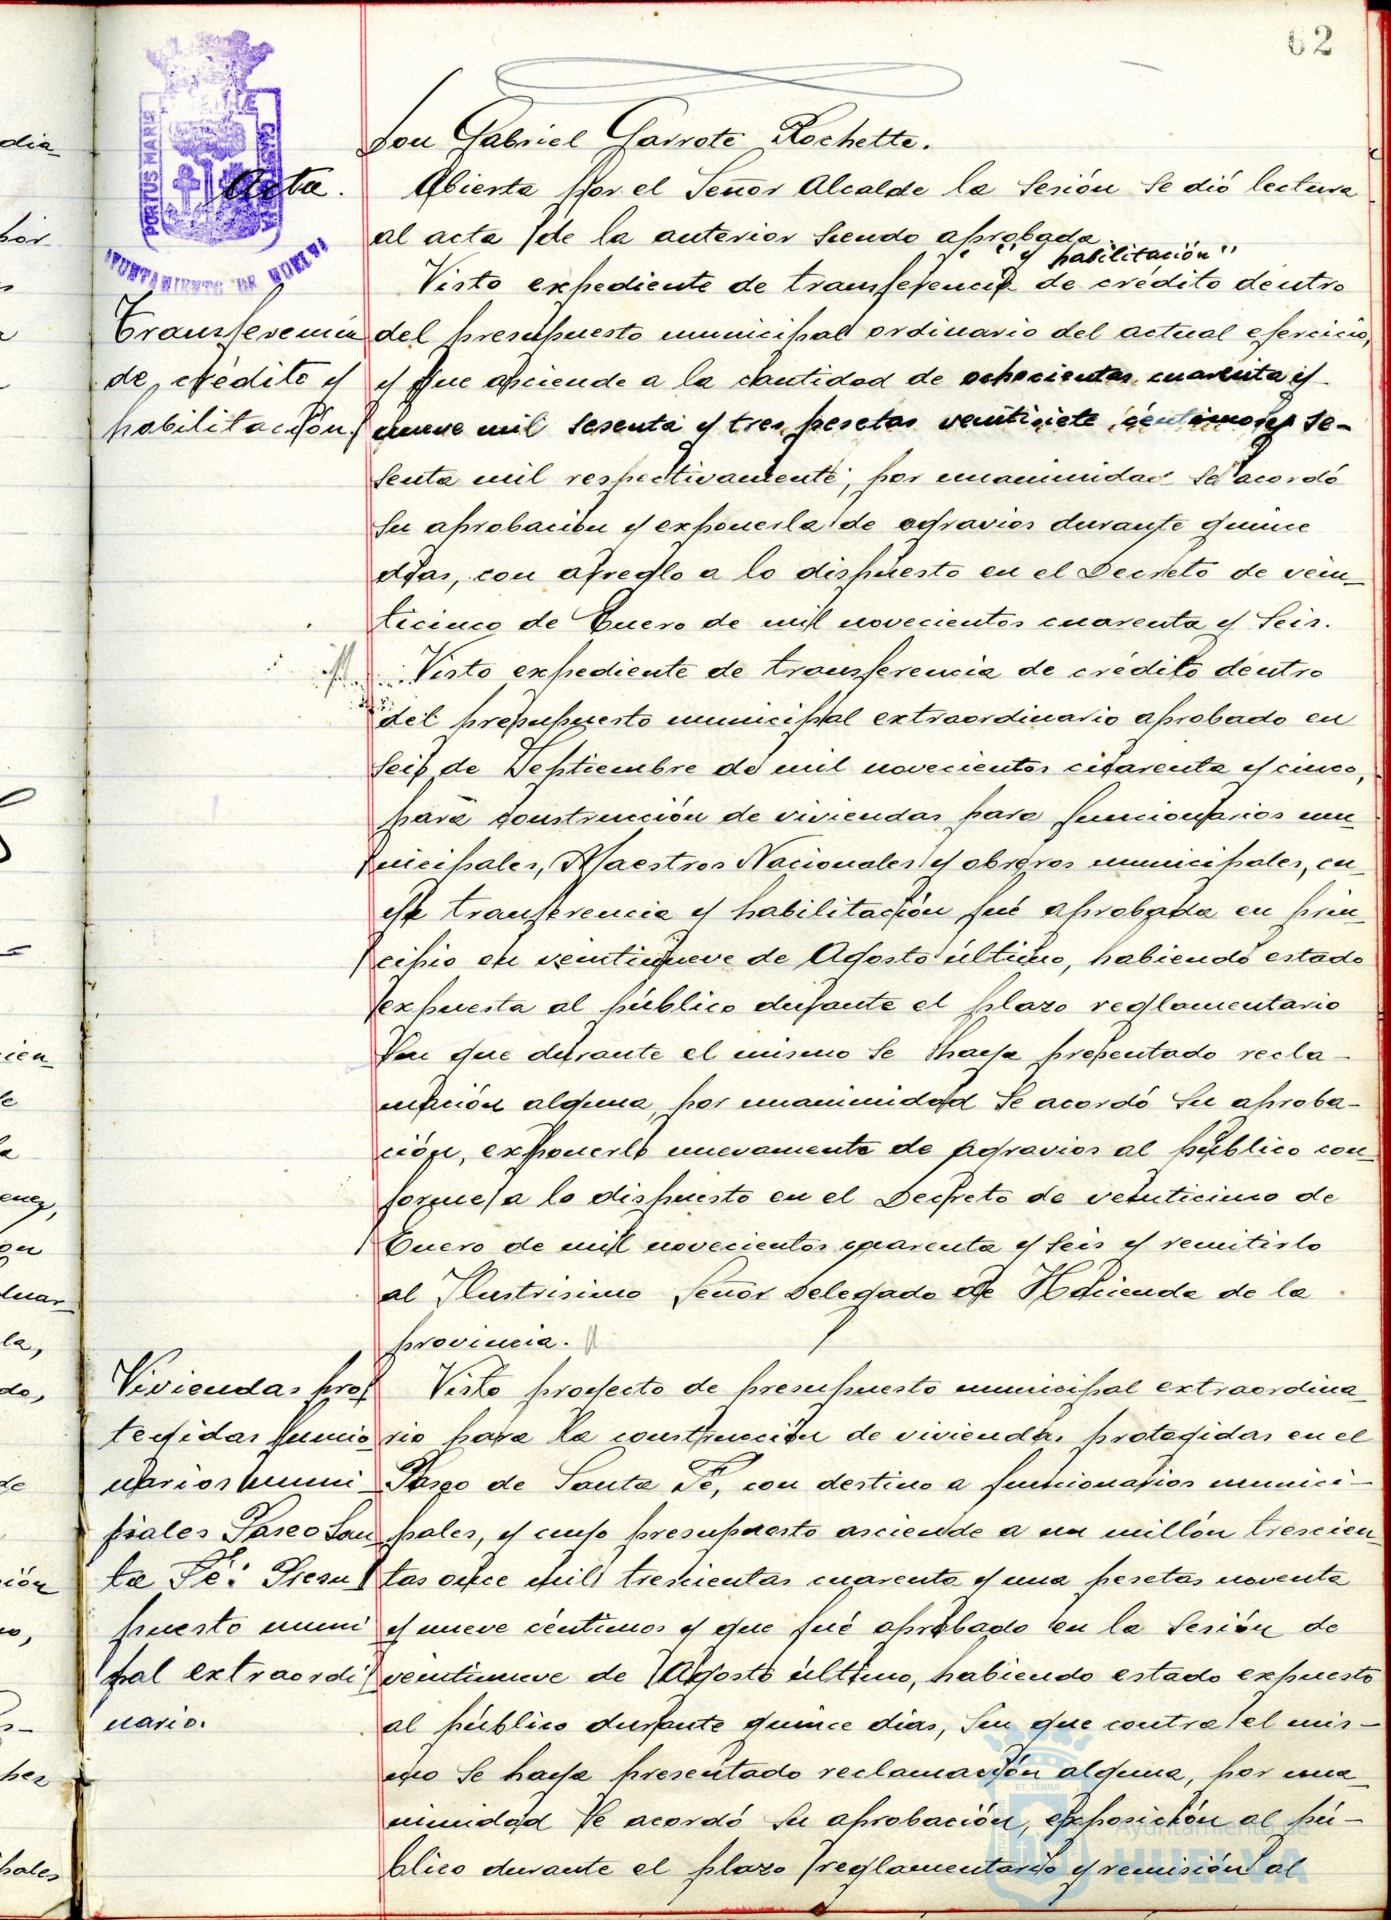 62
PORTUS MARIS
AYUNTAMIENTO DE HUELVA
Don Gabriel Garrote Rochette.
Acta.
Abierta por el Señor Alcalde la Sesión se dió lectura
al acta de la anterior siendo aprobada.
"y habilitación"
Visto expediente de transferencia de crédito dentro
Transferencia
de crédito y
habilitación.
del presupuesto municipal ordinario del actual ejercicio,
y que asciende a la cantidad de ochocientas cuarenta y
nueve mil sesenta y tres pesetas veintisiete céntimos y se-
senta mil respectivamente, por unanimidad se acordó
su aprobación y exponerla de agravios durante quince
días, con arreglo a lo dispuesto en el Decreto de vein-
ticinco de Enero de mil novecientos cuarenta y seis.
Visto expediente de transferencia de crédito dentro
del presupuesto municipal extraordinario aprobado en
seis de Septiembre de mil novecientos cuarenta y cinco,
para construcción de viviendas para funcionarios mu-
nicipales, Maestros Nacionales y obreros municipales, cu-
ya transferencia y habilitación fué aprobada en prin-
cipio en veintinueve de Agosto último, habiendo estado
expuesta al público durante el plazo reglamentario
sin que durante el mismo se haya presentado recla-
mación alguna, por unanimidad se acordó su aproba-
ción, exponerlo nuevamente de agravios al público con-
forme a lo dispuesto en el Decreto de veinticinco de
Enero de mil novecientos cuarenta y seis y remitirlo
al Ilustrisimo Señor Delegado de Hacienda de la
provincia.
Viviendas pro-
tegidas funcio-
narios muni-
pales Paseo San-
ta Fé: Presu-
puesto muni
pal extraordi-
nario.
Visto proyecto de presupuesto municipal extraordina-
rio para la construcción de viviendas protegidas en el
Paseo de Santa Fé, con destino a funcionarios munici-
pales, y cuyo presupuesto asciende a un millón trescien-
tas once mil trescientas cuarenta y una pesetas noventa
y nueve céntimos y que fué aprobado en la Sesión de
veintinueve de Agosto último, habiendo estado expuesto
al público durante quince días, sin que contra el mis-
mo se haya presentado reclamación alguna, por una-
nimidad se acordó su aprobación, exposición al pú-
blico durante el plazo reglamentario y remisión al
Ayuntamiento de
HUELVA